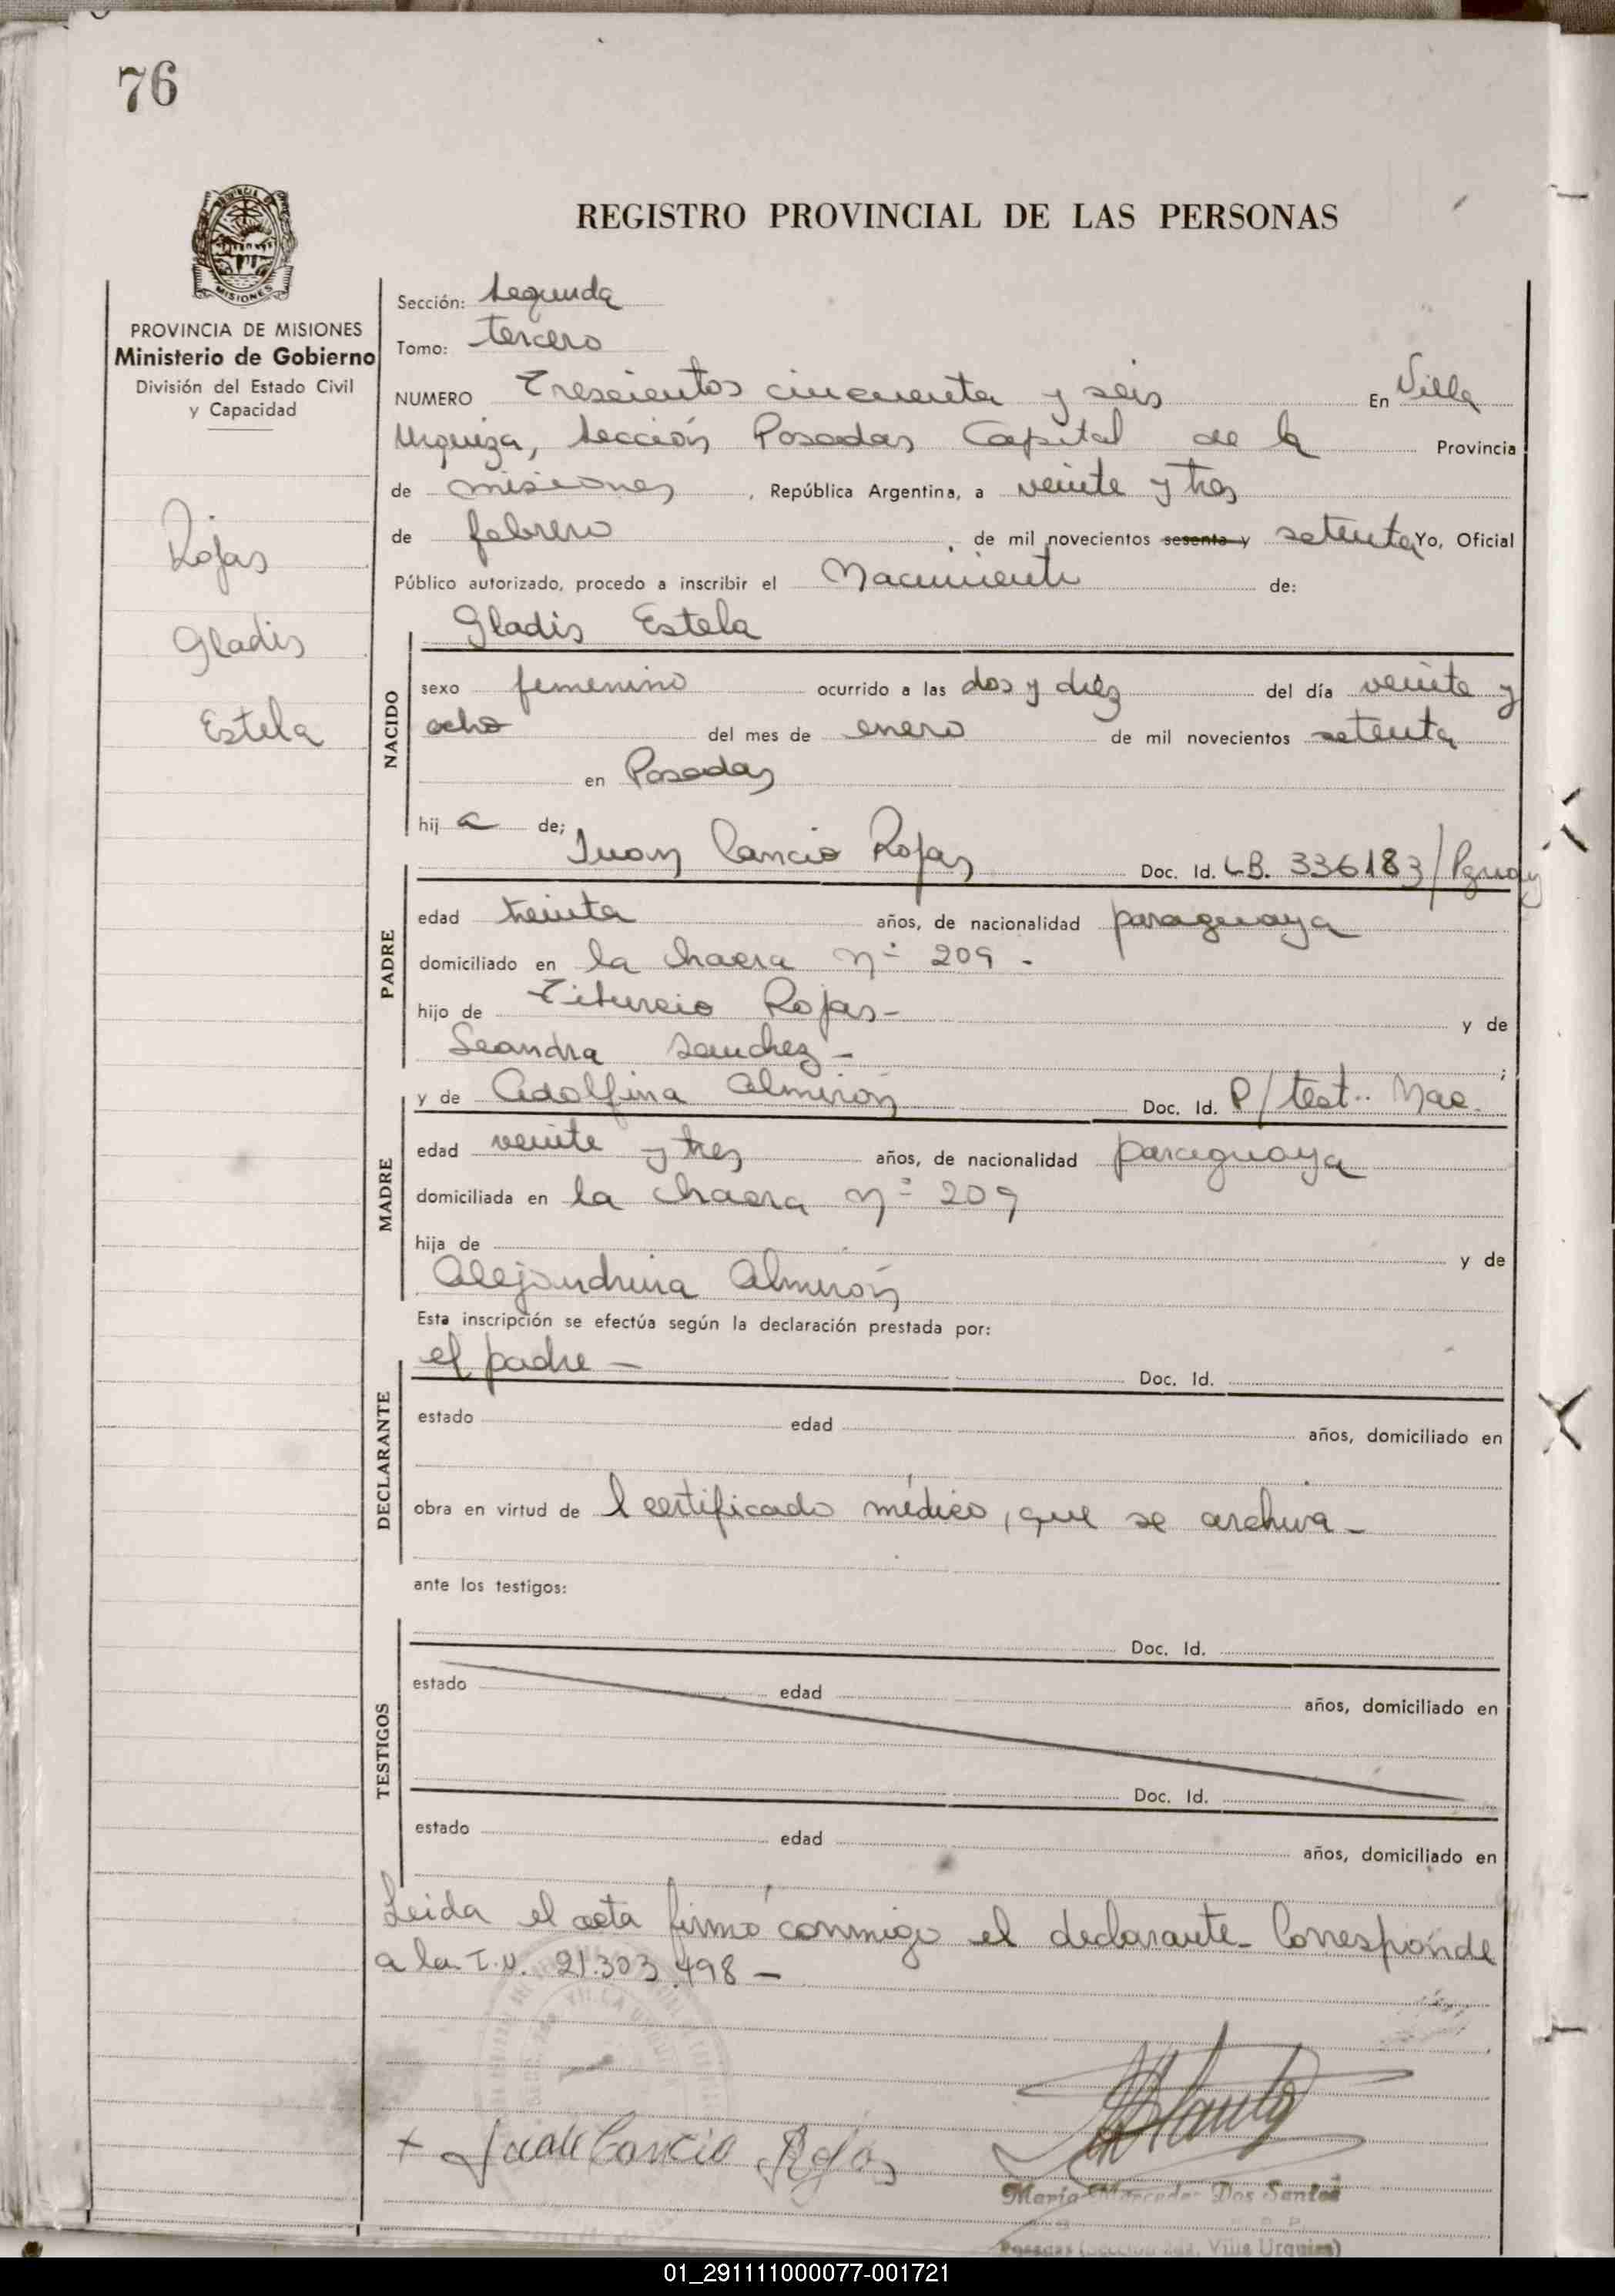 76
REGISTRO PROVINCIAL DE LAS PERSONAS
MISIONES
PROVINCIA DE MISIONES
Ministerio de Gobierno
División del Estado Civil
y Capacidad
Rojas
Gladis
Estela
Sección: Segunda
Tomo: tercero
NUMERO Trescientos cincuenta y seis En Villa
Urquiza, Sección Posadas Capital de la Provincia
de misiones, República Argentina, a veinte y tres
de febrero de mil novecientos sesenta y setenta Yo, Oficial
Público autorizado, procedo a inscribir el Nacimiento de:
Gladis Estela
NACIDO
sexo femenino ocurrido a las dos y diéz del día veinte y
ocho del mes de enero de mil novecientos setenta
en Posadas
hij a de;
Juan Cancio Rojas Doc. Id. LB. 336183/Pguay
PADRE
edad treinta años, de nacionalidad paraguaya
domiciliado en la chacra nº 209 -
hijo de Tiburcio Rojas - y de
Leandra Sanchez - ;
y de Adolfina Almirón Doc. Id. P/test. Nac.
MADRE
edad veinte y tres años, de nacionalidad paraguaya
domiciliada en la chacra nº 209
hija de y de
Alejandrina Almirón
Esta inscripción se efectúa según la declaración prestada por:
el padre - Doc. Id.
DECLARANTE
estado edad años, domiciliado en
obra en virtud de l certificado médico, que se archiva -
ante los testigos:
Doc. Id.
TESTIGOS
estado edad años, domiciliado en
Doc. Id.
estado edad años, domiciliado en
Leida el acta firmó conmigo el declarante - Corresponde
a la I.N. 21.303.498 -
+ Juan Cancio Rojas
Maria Mercedes Dos Santos
Posadas (Sección 2da. Villa Urquiza)
01_291111000077-001721